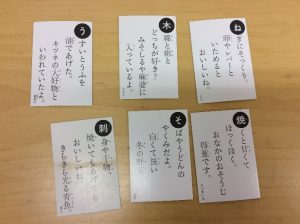 ねぎにそっくり。
卵やレバーと
いためると
おいしいね。
木綿と絹と
どっちが好き？
みそしるや麻婆に
入っているよ。
うすいとうふを
油であげた。
キツネの大好物と
いわれていたよ。
焼くと甘くて
ほっくほく。
おなかのおそうじ
得意です。
そばやうどんの
やくみだよ。
白くて長い
冬の野菜
刺身や干物、
焼いてもあげても
おいしいね。
きらきら光る青魚。